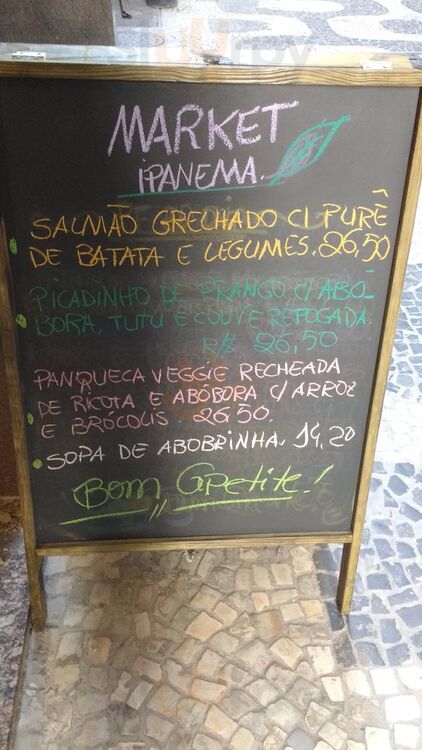 MARKET
IPANEMA.
SALMÃO GRELHADO C/ PURÊ
DE BATATA E LEGUMES. 26,50
PICADINHO DE FRANGO C/ ABÓ-
BORA, TUTU E COUVE REFOGADA.
R$ 26,50
PANQUECA VEGGIE RECHEADA
DE RICOTA E ABÓBORA C/ ARROZ
E BRÓCOLIS. 26,50.
SOPA DE ABOBRINHA. 14,20
Bom Apetite!